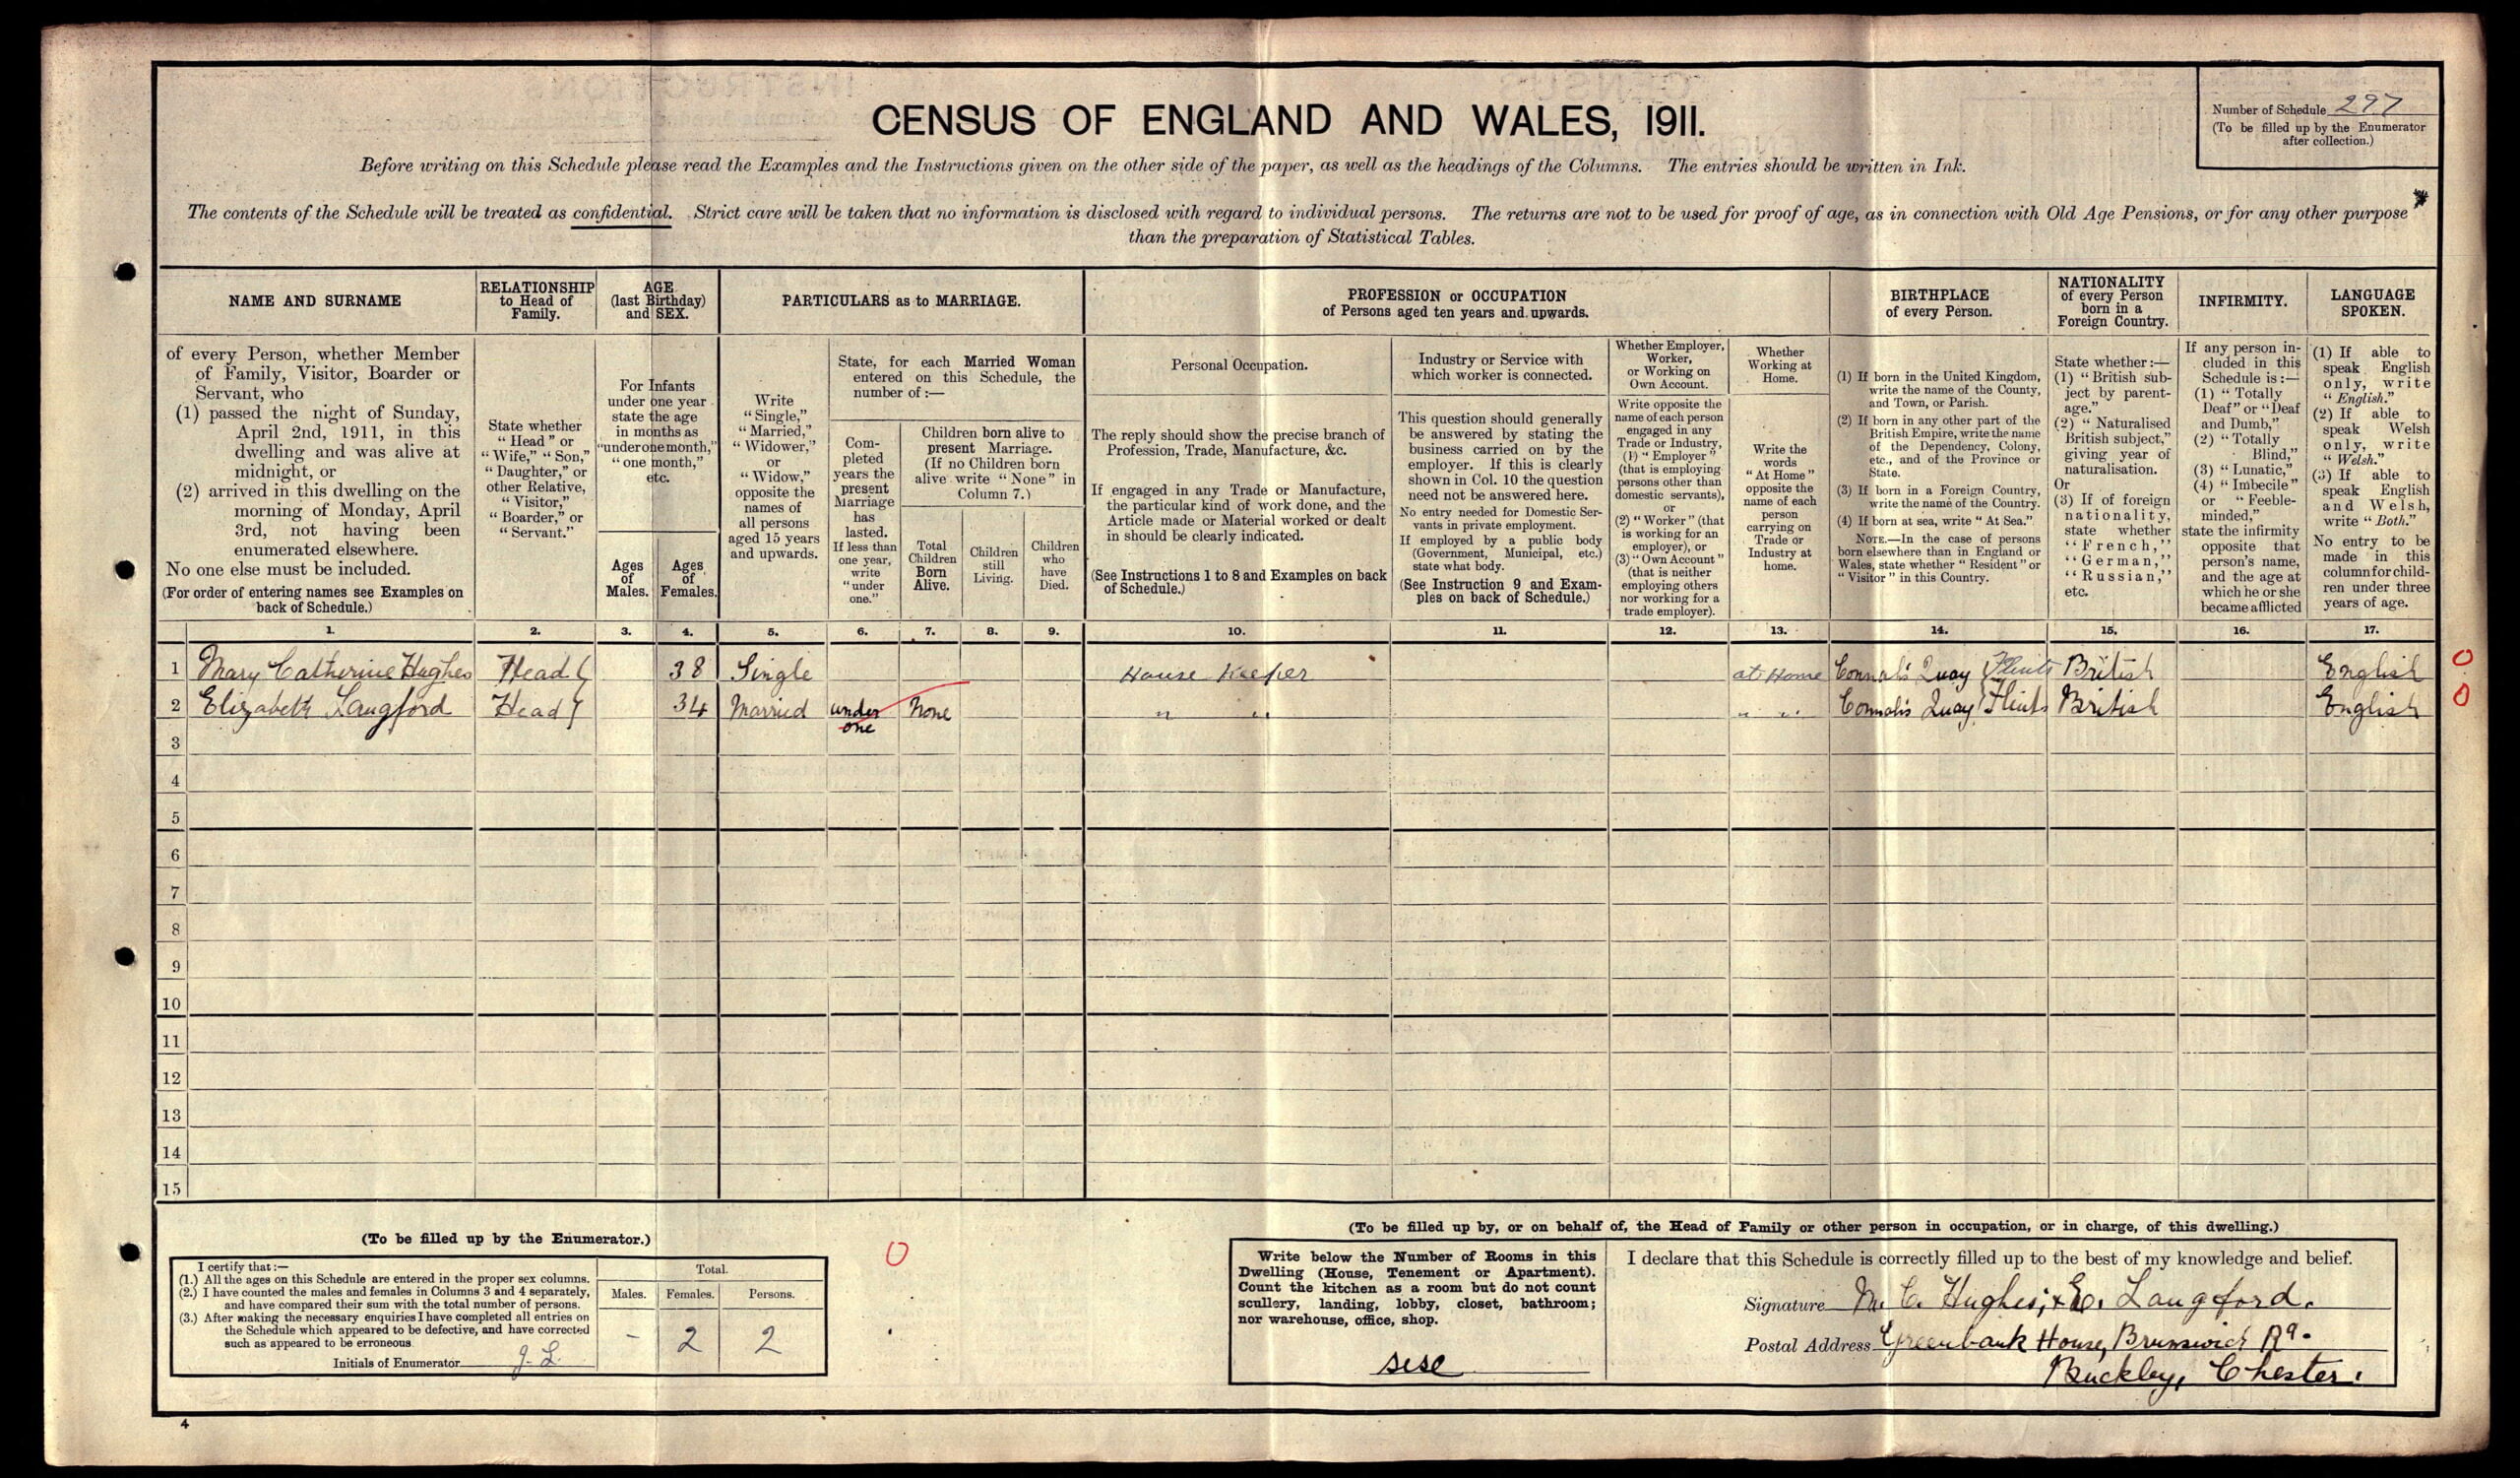 CENSUS OF ENGLAND AND WALES, 1911.
Number of Schedule 297
(To be filled up by the Enumerator
after collection.)
Before writing on this Schedule please read the Examples and the Instructions given on the other side of the paper, as well as the headings of the Columns. The entries should be written in Ink.
The contents of the Schedule will be treated as confidential. Strict care will be taken that no information is disclosed with regard to individual persons. The returns are not to be used for proof of age, as in connection with Old Age Pensions, or for any other purpose
than the preparation of Statistical Tables.
NAME AND SURNAME
of every Person, whether Member
of Family, Visitor, Boarder or
Servant, who
(1) passed the night of Sunday,
April 2nd, 1911, in this
dwelling and was alive at
midnight, or
(2) arrived in this dwelling on the
morning of Monday, April
3rd, not having been
enumerated elsewhere.
No one else must be included.
(For order of entering names see Examples on
back of Schedule.)
RELATIONSHIP
to Head of
Family.
State whether
"Head" or
"Wife," "Son,"
"Daughter," or
other Relative,
"Visitor,"
"Boarder," or
"Servant."
AGE
(last Birthday)
and SEX.
For Infants
under one year
state the age
in months as
"under one month,"
"one month,"
etc.
Ages
of
Males.
Ages
of
Females.
PARTICULARS as to MARRIAGE.
Write
"Single,"
"Married,"
"Widower,"
or
"Widow,"
opposite the
names of
all persons
aged 15 years
and upwards.
State, for each Married Woman
entered on this Schedule, the
number of :—
Com-
pleted
years the
present
Marriage
has
lasted.
If less than
one year,
write
"under
one."
Children born alive to
present Marriage.
(If no Children born
alive write "None" in
Column 7.)
Total
Children
Born
Alive.
Children
still
Living.
Children
who
have
Died.
PROFESSION or OCCUPATION
of Persons aged ten years and upwards.
Personal Occupation.
The reply should show the precise branch of
Profession, Trade, Manufacture, &c.
If engaged in any Trade or Manufacture,
the particular kind of work done, and the
Article made or Material worked or dealt
in should be clearly indicated.
(See Instructions 1 to 8 and Examples on back
of Schedule.)
Industry or Service with
which worker is connected.
This question should generally
be answered by stating the
business carried on by the
employer. If this is clearly
shown in Col. 10 the question
need not be answered here.
No entry needed for Domestic Ser-
vants in private employment.
If employed by a public body
(Government, Municipal, etc.)
state what body.
(See Instruction 9 and Exam-
ples on back of Schedule.)
Whether Employer,
Worker,
or Working on
Own Account.
Write opposite the
name of each person
engaged in any
Trade or Industry,
(1) "Employer"
(that is employing
persons other than
domestic servants),
or
(2) "Worker" (that
is working for an
employer), or
(3) "Own Account"
(that is neither
employing others
nor working for a
trade employer).
Whether
Working at
Home.
Write the
words
"At Home"
opposite the
name of each
person
carrying on
Trade or
Industry at
home.
BIRTHPLACE
of every Person.
(1) If born in the United Kingdom,
write the name of the County,
and Town, or Parish.
(2) If born in any other part of the
British Empire, write the name
of the Dependency, Colony,
etc., and of the Province or
State.
(3) If born in a Foreign Country,
write the name of the Country.
(4) If born at sea, write "At Sea."
NOTE.—In the case of persons
born elsewhere than in England or
Wales, state whether "Resident" or
"Visitor" in this Country.
NATIONALITY
of every Person
born in a
Foreign Country.
State whether :—
(1) "British sub-
ject by parent-
age."
(2) "Naturalised
British subject,"
giving year of
naturalisation.
Or
(3) If of foreign
nationality,
state whether
"French,"
"German,"
"Russian,"
etc.
INFIRMITY.
If any person in-
cluded in this
Schedule is :—
(1) "Totally
Deaf" or "Deaf
and Dumb,"
(2) "Totally
Blind,"
(3) "Lunatic,"
(4) "Imbecile"
or "Feeble-
minded,"
state the infirmity
opposite that
person's name,
and the age at
which he or she
became afflicted
LANGUAGE
SPOKEN.
(1) If able to
speak English
only, write
"English."
(2) If able to
speak Welsh
only, write
"Welsh."
(3) If able to
speak English
and Welsh,
write "Both."
No entry to be
made in this
column for child-
ren under three
years of age.
1. 2. 3. 4. 5. 6. 7. 8. 9. 10. 11. 12. 13. 14. 15. 16. 17.
1 Mary Catherine Hughes Head 38 Single House Keeper at Home Connah's Quay Flints British English 0
2 Elizabeth Langford Head 34 Married under one None " " " " Connah's Quay Flints British English 0
3
4
5
6
7
8
9
10
11
12
13
14
15
(To be filled up by the Enumerator.)
I certify that :—
(1.) All the ages on this Schedule are entered in the proper sex columns.
(2.) I have counted the males and females in Columns 3 and 4 separately,
and have compared their sum with the total number of persons.
(3.) After making the necessary enquiries I have completed all entries on
the Schedule which appeared to be defective, and have corrected
such as appeared to be erroneous
Initials of Enumerator J. L.
Total.
Males. Females. Persons.
- 2 2
0
(To be filled up by, or on behalf of, the Head of Family or other person in occupation, or in charge, of this dwelling.)
Write below the Number of Rooms in this
Dwelling (House, Tenement or Apartment).
Count the kitchen as a room but do not count
scullery, landing, lobby, closet, bathroom;
nor warehouse, office, shop.
I declare that this Schedule is correctly filled up to the best of my knowledge and belief.
Signature M. C. Hughes; & E. Langford.
Postal Address Greenbank House, Brunswick Rd.
Buckley, Chester.
4